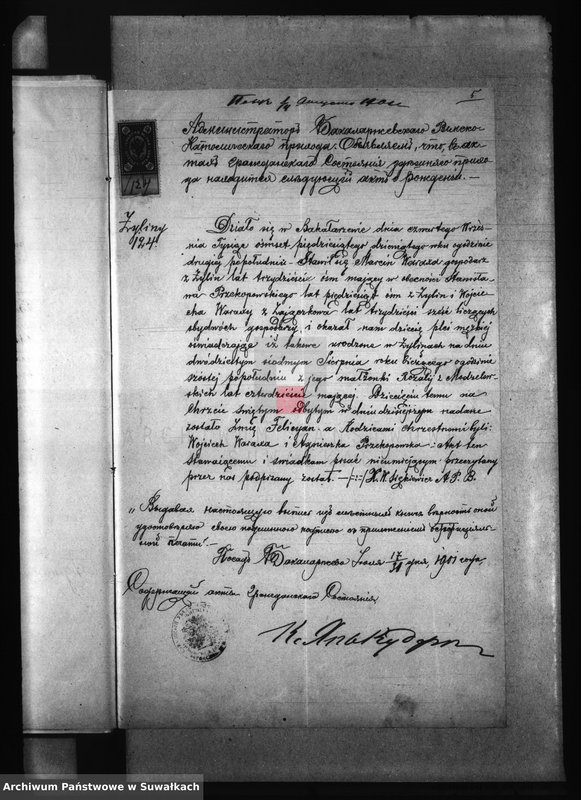 5
Администраторъ Бакаларжевскаго Римско-
Католическаго прихода. Объявляетъ, что, въ ак-
тахъ Гражданскаго Состоянія здешняго прихо-
да находится следующій актъ о рожденіи. —
Żyliny
124.
Działo się w Bakałarzewie dnia czwartego Wrześ-
nia Tysiąc ośmset pięćdziesiątego dziewiątego roku o godzinie
drugiej popołudniu — Stawił się Marcin Wawara gospodarz
z Żylin lat trzydzieści ośm mający w obecności Stanisła-
wa Przekopowskiego lat pięćdziesiąt ośm z Żylin i Wojcie-
cha Wawary z Zajączkowa lat trzydzieści sześć liczących
obydwóch gospodarzy, i okazał nam dziecię płci męzkiej
oświadczając iż takowe urodzone w Żylinach na dniu
dwódziestym siódmym Sierpnia roku bieżącego o godzinie
szóstej popołudniu z jego małżonki Rozalij z Modzelew-
skich lat czterdzieści mającej. Dziecięciu temu na
Chrzcie świętym odbytym w dniu dzisiejszym nadane
zostało Imię Felicyan a Rodzicami chrzestnemi byli:
Wojciech Wawara i Agnieszka Przekopowska — Akt ten
Stawaiącemu i świadkom pisać nieumiejącym przeczytany
przez nas podpisany został. — X. W. A. P. B.
„ Выдавая настоящую выпись изъ метической книги верность оной
удостоверяю своею подписью съ приложеніемъ
ной печати! —
Посадъ Бакаларжево Іюля 17/30 дня, 1901 года,
Содержащій акты Гражданскаго Состоянія
Archiwum Państwowe w Suwałkach